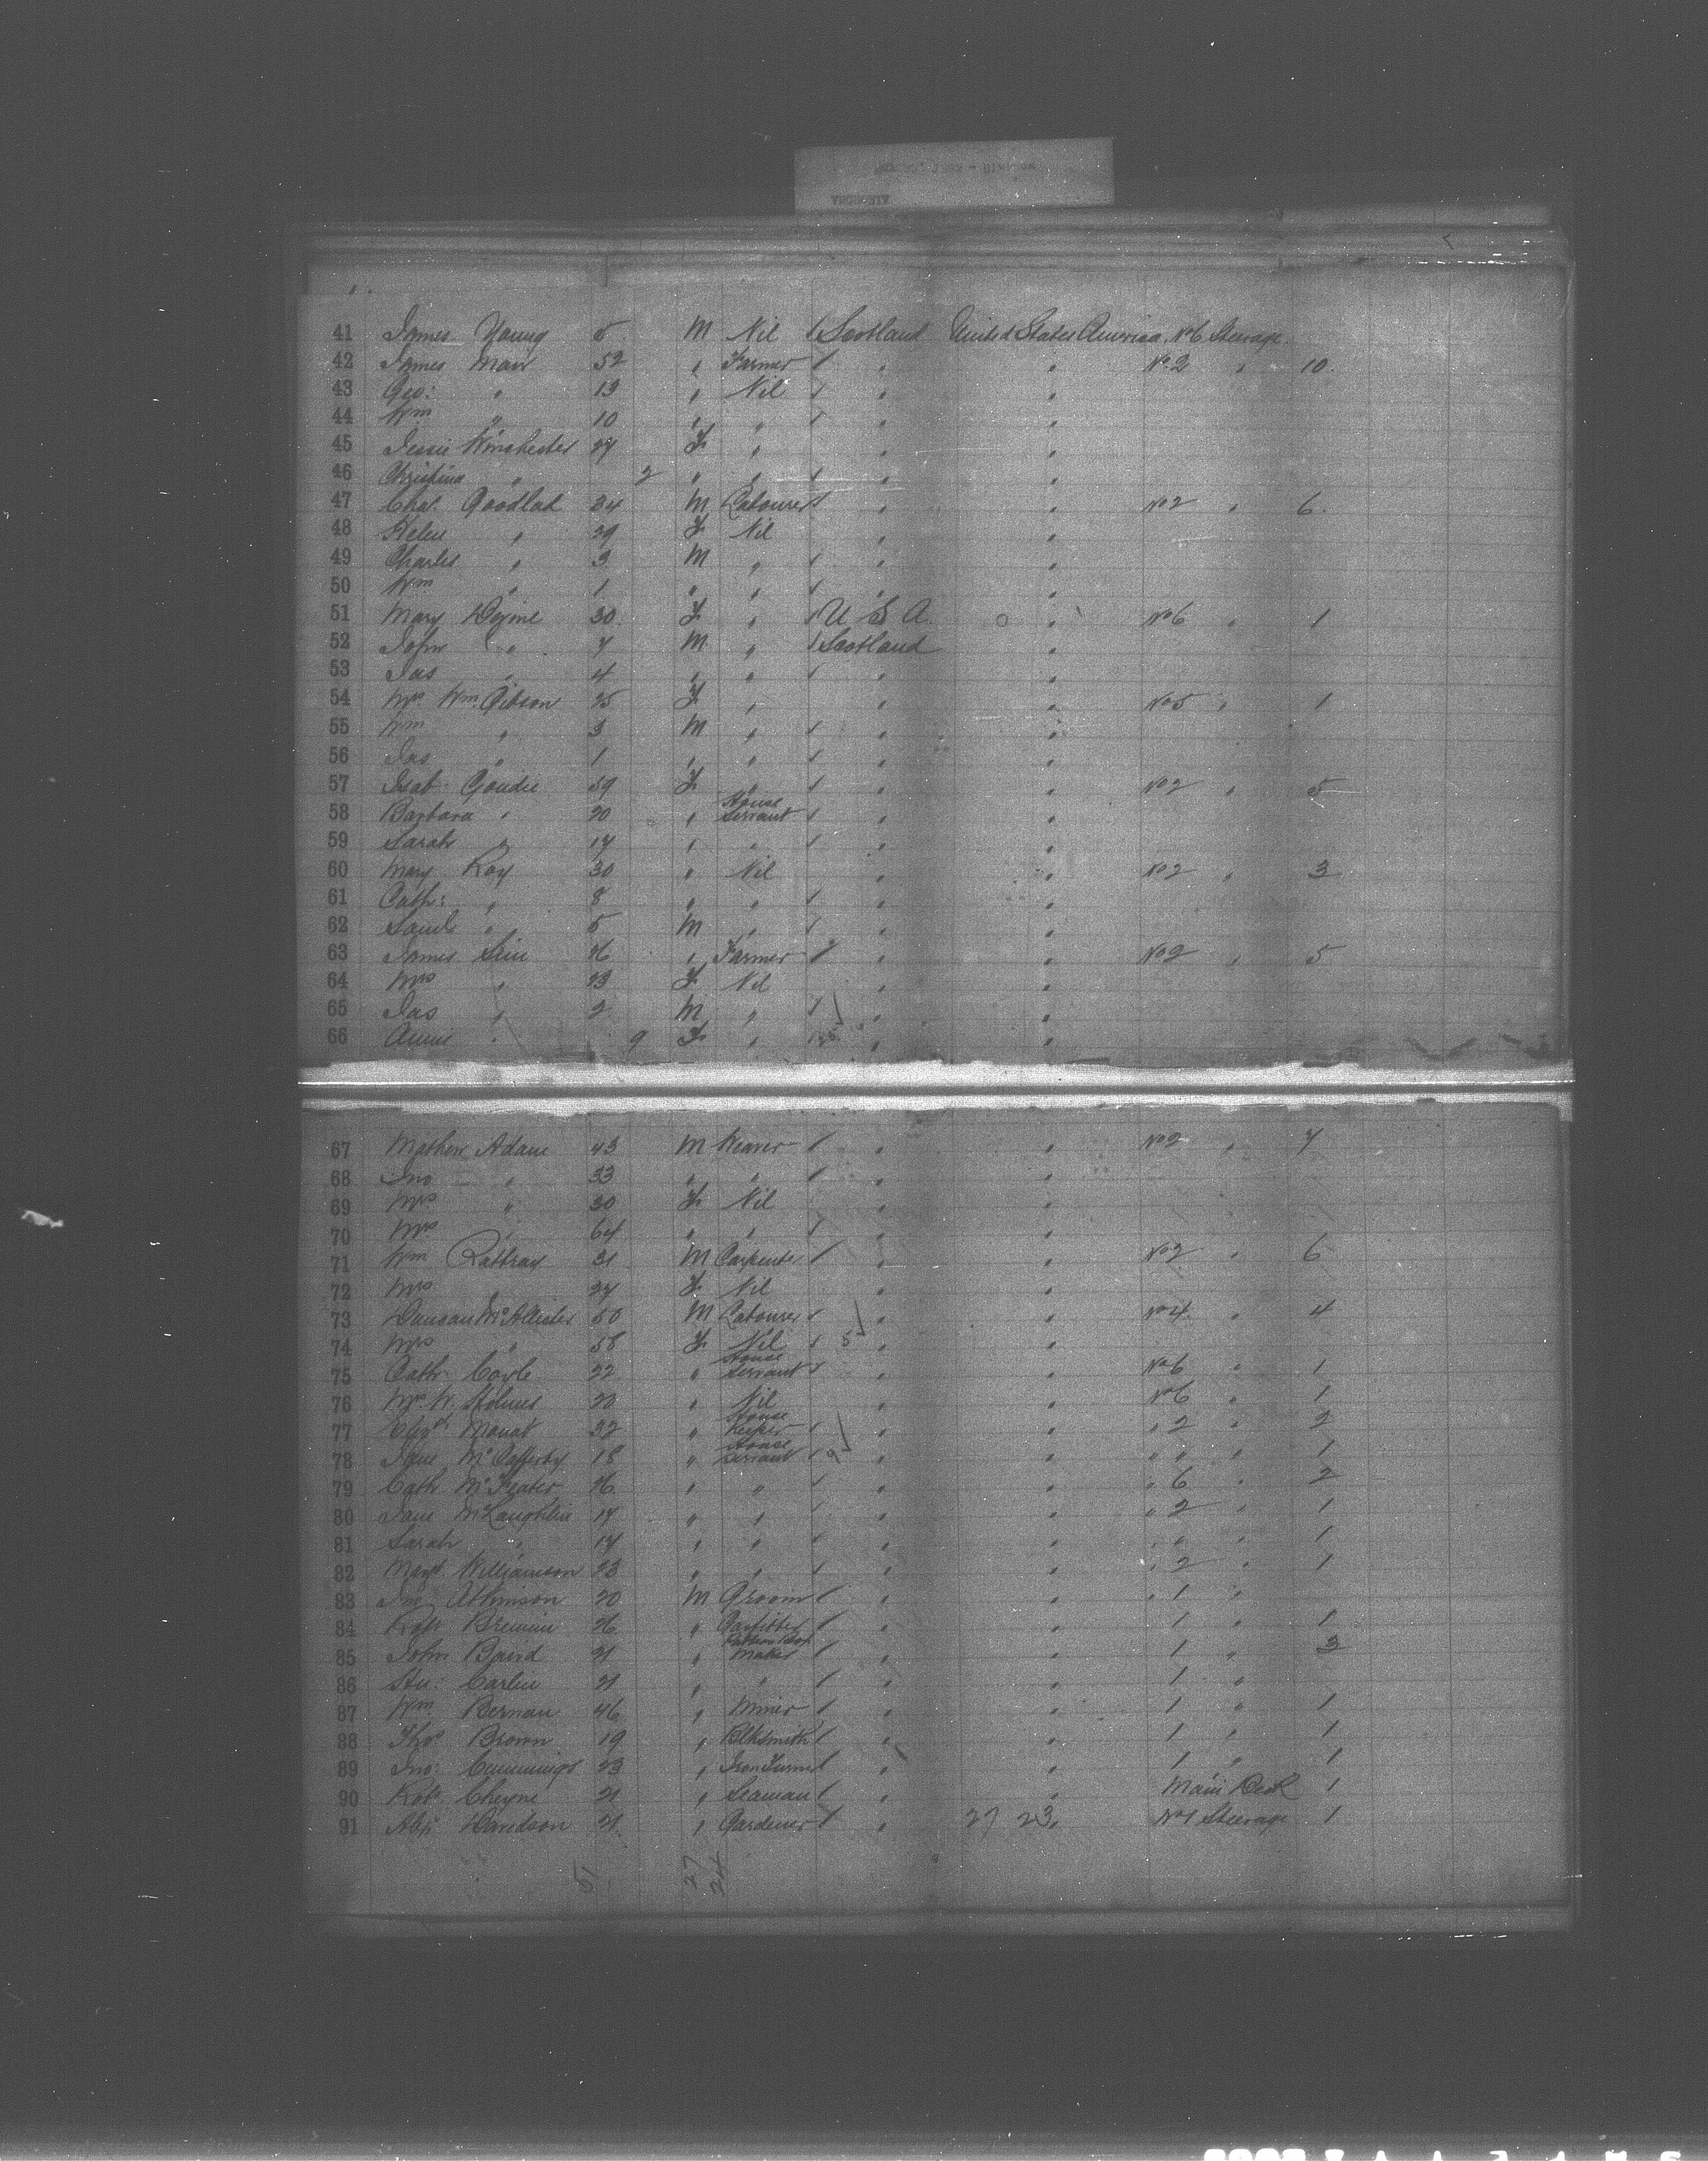 41 James Young 5 M Nil / Scotland United States America No 6 Steerage.
42 James Mair 52 " Farmer / " " No 2 " 10.
43 Geo: " 13 " Nil / " "
44 Wm " 10 " " / " "
45 Jessie Winchester 27 F " " "
46 Christina " 2 " " / " "
47 Chas. Goodlad 34 M Labourer / " " No 2 " 6.
48 Helen " 29 F Nil " "
49 Charles " 3 M " / " "
50 Wm " 1 " " / " "
51 Mary 30 F " / U S A. " No 6 " 1
52 John " 7 M " / Scotland "
53 Jas " 4 " " / " "
54 Mrs Wm Gibson 25 F " " " No 5 " 1
55 Wm " 3 M " / " "
56 Jas " 1 " " / " "
57 Isab. Goudie 59 F " / " " No 2 " 5
58 Barbara " 20 " House Servant / " "
59 Sarah " 17 " " / " "
60 Mary Roy 30 " Nil " " No 2 " 3
61 Cath: " 8 " " / " "
62 Saml " 5 M " / " "
63 James Sim 26 " Farmer / " " No 2 " 5
64 Mrs " 23 F Nil " "
65 Jas " 2 M " / " "
66 Annie " 9 F " / " "
67 Mathew Adam 43 M Weaver / " " No 2 " 7
68 Jno " 33 " " / " "
69 Mrs " 30 F Nil " "
70 Mrs " 64 " " / " "
71 Wm Rattray 31 M Carpenter / " " No 2 " 6
72 Mrs 24 F Nil " "
73 Duncan McAllister 50 M Labourer / " " No 4 " 4
74 Mrs " 58 F Nil / 5 " "
75 Cath. Coyle 22 " House Servant / " " No 6 " 1
76 Mrs W. Holmes 22 " Nil " " No 6 " 1
77 Elizth Mouat 32 " House Keeper / " " " 2 " 2
78 Jane McCafferty 18 " House Servant / 9 " " " " " 1
79 Cath McFeater 26 " " / " " " 6 " 2
80 Jane McLaughlin 17 " " / " " " 2 " 1
81 Sarah " 14 " " / " " " " " 1
82 Magt Williamson 23 " " / " " " 2 " 1
83 Jno Atkinson 20 M Groom / " " " 1 "
84 Robt 26 " Gasfitter / " " 1 " 1
85 John Baird 21 " Maker / " " 1 " 3
86 Carlin 21 " " / " " 1 "
87 Wm Bernan 46 " Miner / " " 1 " 1
88 Thos Brown 19 " Blksmith / " " 1 " 1
89 Jno: Cummings 23 " Iron Turner / " " 1 " 1
90 Robt Cheyne 21 " Seaman / " " Main Deck 1
91 Alex Davidson 21 " Gardener / " 27 23 " No 1 Steerage 1
51 27 24